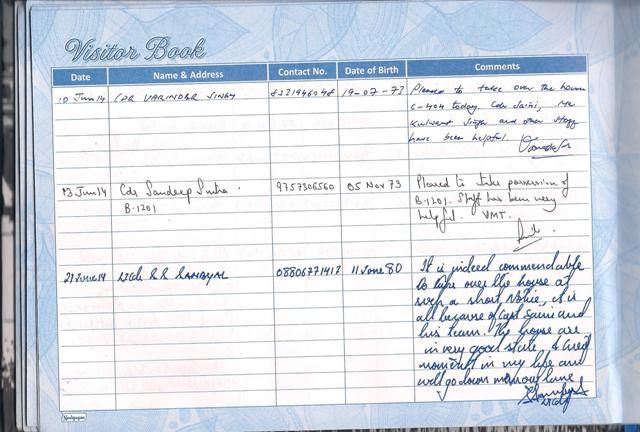 Visitor Book
Date Name & Address Contact No. Date of Birth Comments
10 Jun 14 CDR VARINDER SINGH 8331946048 19-07-73 Pleased to take over the house
C-404 today. Cdr Saini, Mr
Kulwant Singh and other staff
have been helpful.
13 Jun 14 Cdr Sandeep Sinha. 9757306560 05 Nov 73 Pleased to take possession of
B-1201 B-1201. Staff has been very
helpful. VMT.
21 June 14 Lt Cdr S S SANGYAL 08806771412 11 June 80 It is indeed commendable
to take over the house at
such a short Notice, it is
all because of Capt Saini and
his team. The house are
in very good state. A Great
moment in my life and
will go down memory lane
Lt Cdr
Navdeepayan